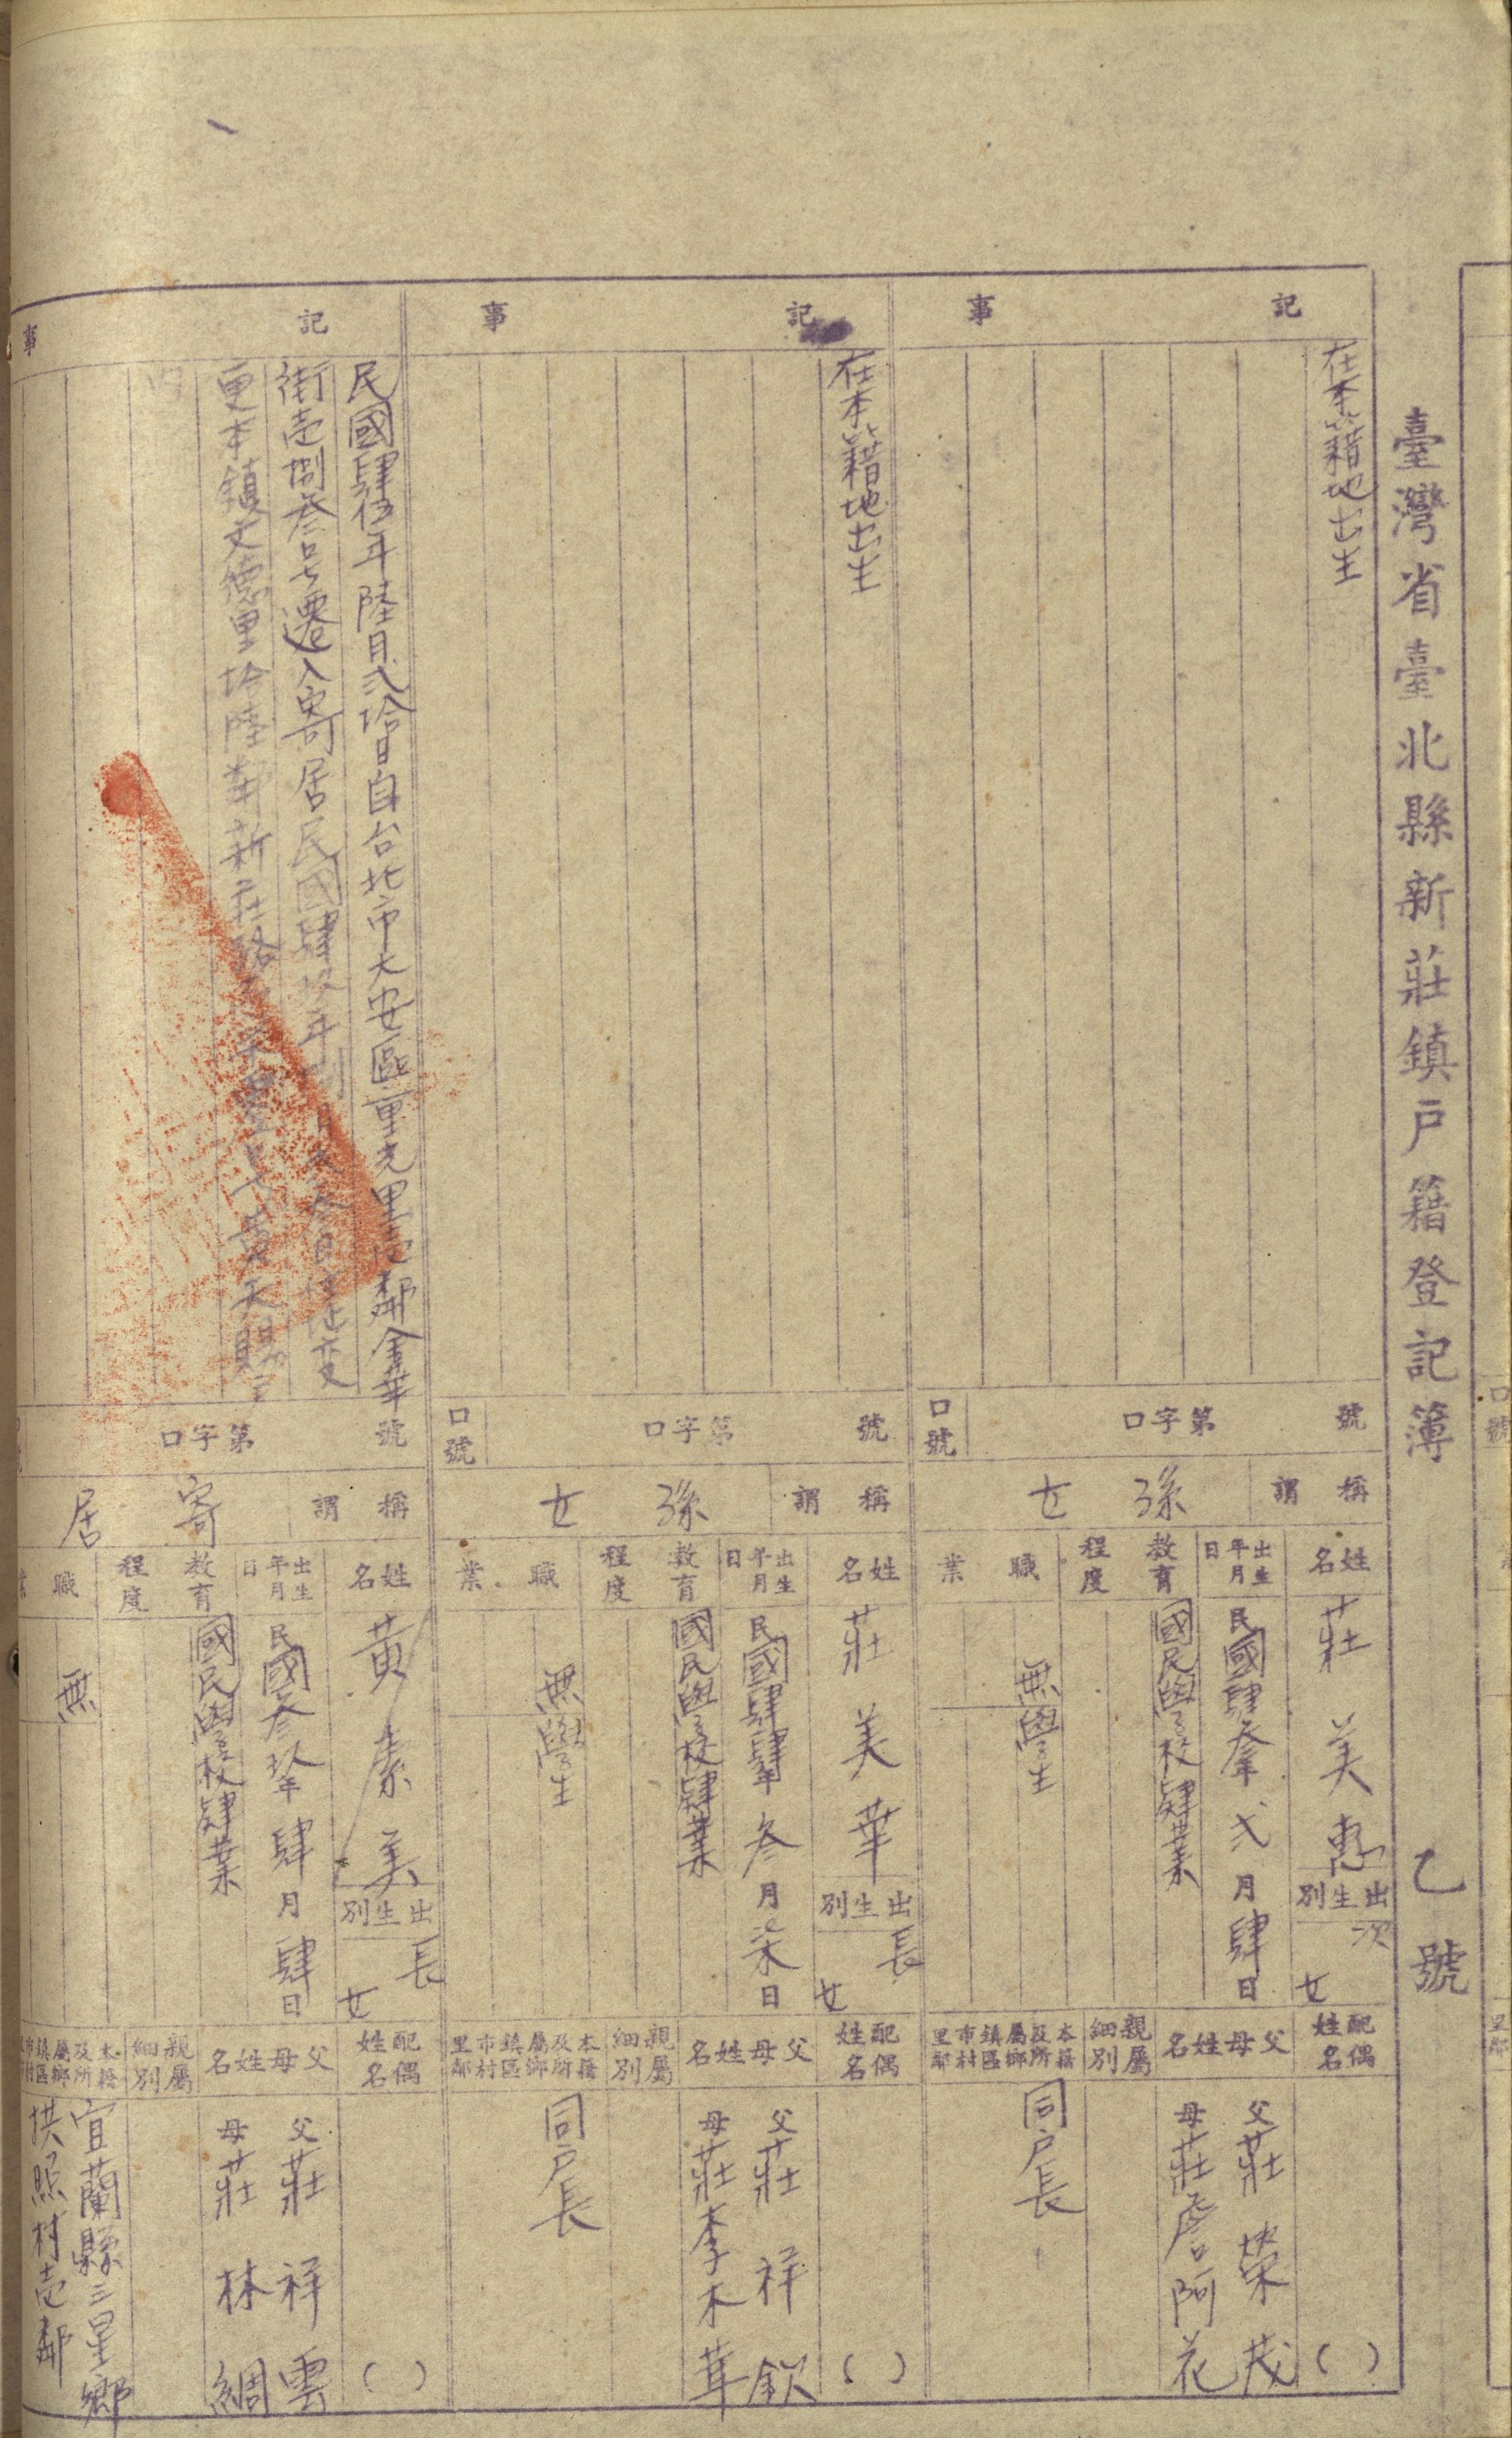 臺灣省臺北縣新莊鎮戶籍登記簿 乙號
記事
在本籍地出生
口號
第字口號
稱謂
孫女
姓名
莊美惠
出生別
次女
出生年月日
民國肆叁年弍月肆日
教育程度
國民學校肄業
職業
無
學生
配偶姓名
( )
父母姓名
父莊榮茂
母莊詹阿花
親屬細別
本籍及所屬鄉鎮區市村里鄰
同戶長
記事
在本籍地出生
口號
第字口號
稱謂
孫女
姓名
莊美華
出生別
長女
出生年月日
民國肆肆年叁月柒日
教育程度
國民學校肄業
職業
無
學生
配偶姓名
( )
父母姓名
父莊祥欽
母莊李木
親屬細別
本籍及所屬鄉鎮區市村里鄰
同戶長
記事
民國肆伍年陸月弍拾日自台北市大安區里鄰金華
街壱捌叁号遷入寄居民國肆年住址變
更本鎮文德里拾陸鄰新路
第字口號
稱謂
寄居
姓名
黃素美
出生別
長女
出生年月日
民國叁玖年肆月肆日
教育程度
國民學校肄業
職業
無
配偶姓名
( )
父母姓名
父莊祥雲
母莊林綢
親屬細別
本籍及所屬鄉鎮區市村
宜蘭縣三星鄉
拱照村壱鄰